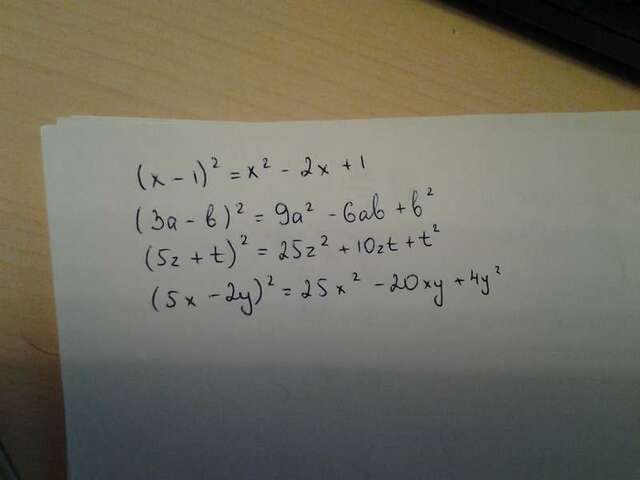 (x - 1)² = x² - 2x + 1
(3a - b)² = 9a² - 6ab + b²
(5z + t)² = 25z² + 10zt + t²
(5x - 2y)² = 25x² - 20xy + 4y²